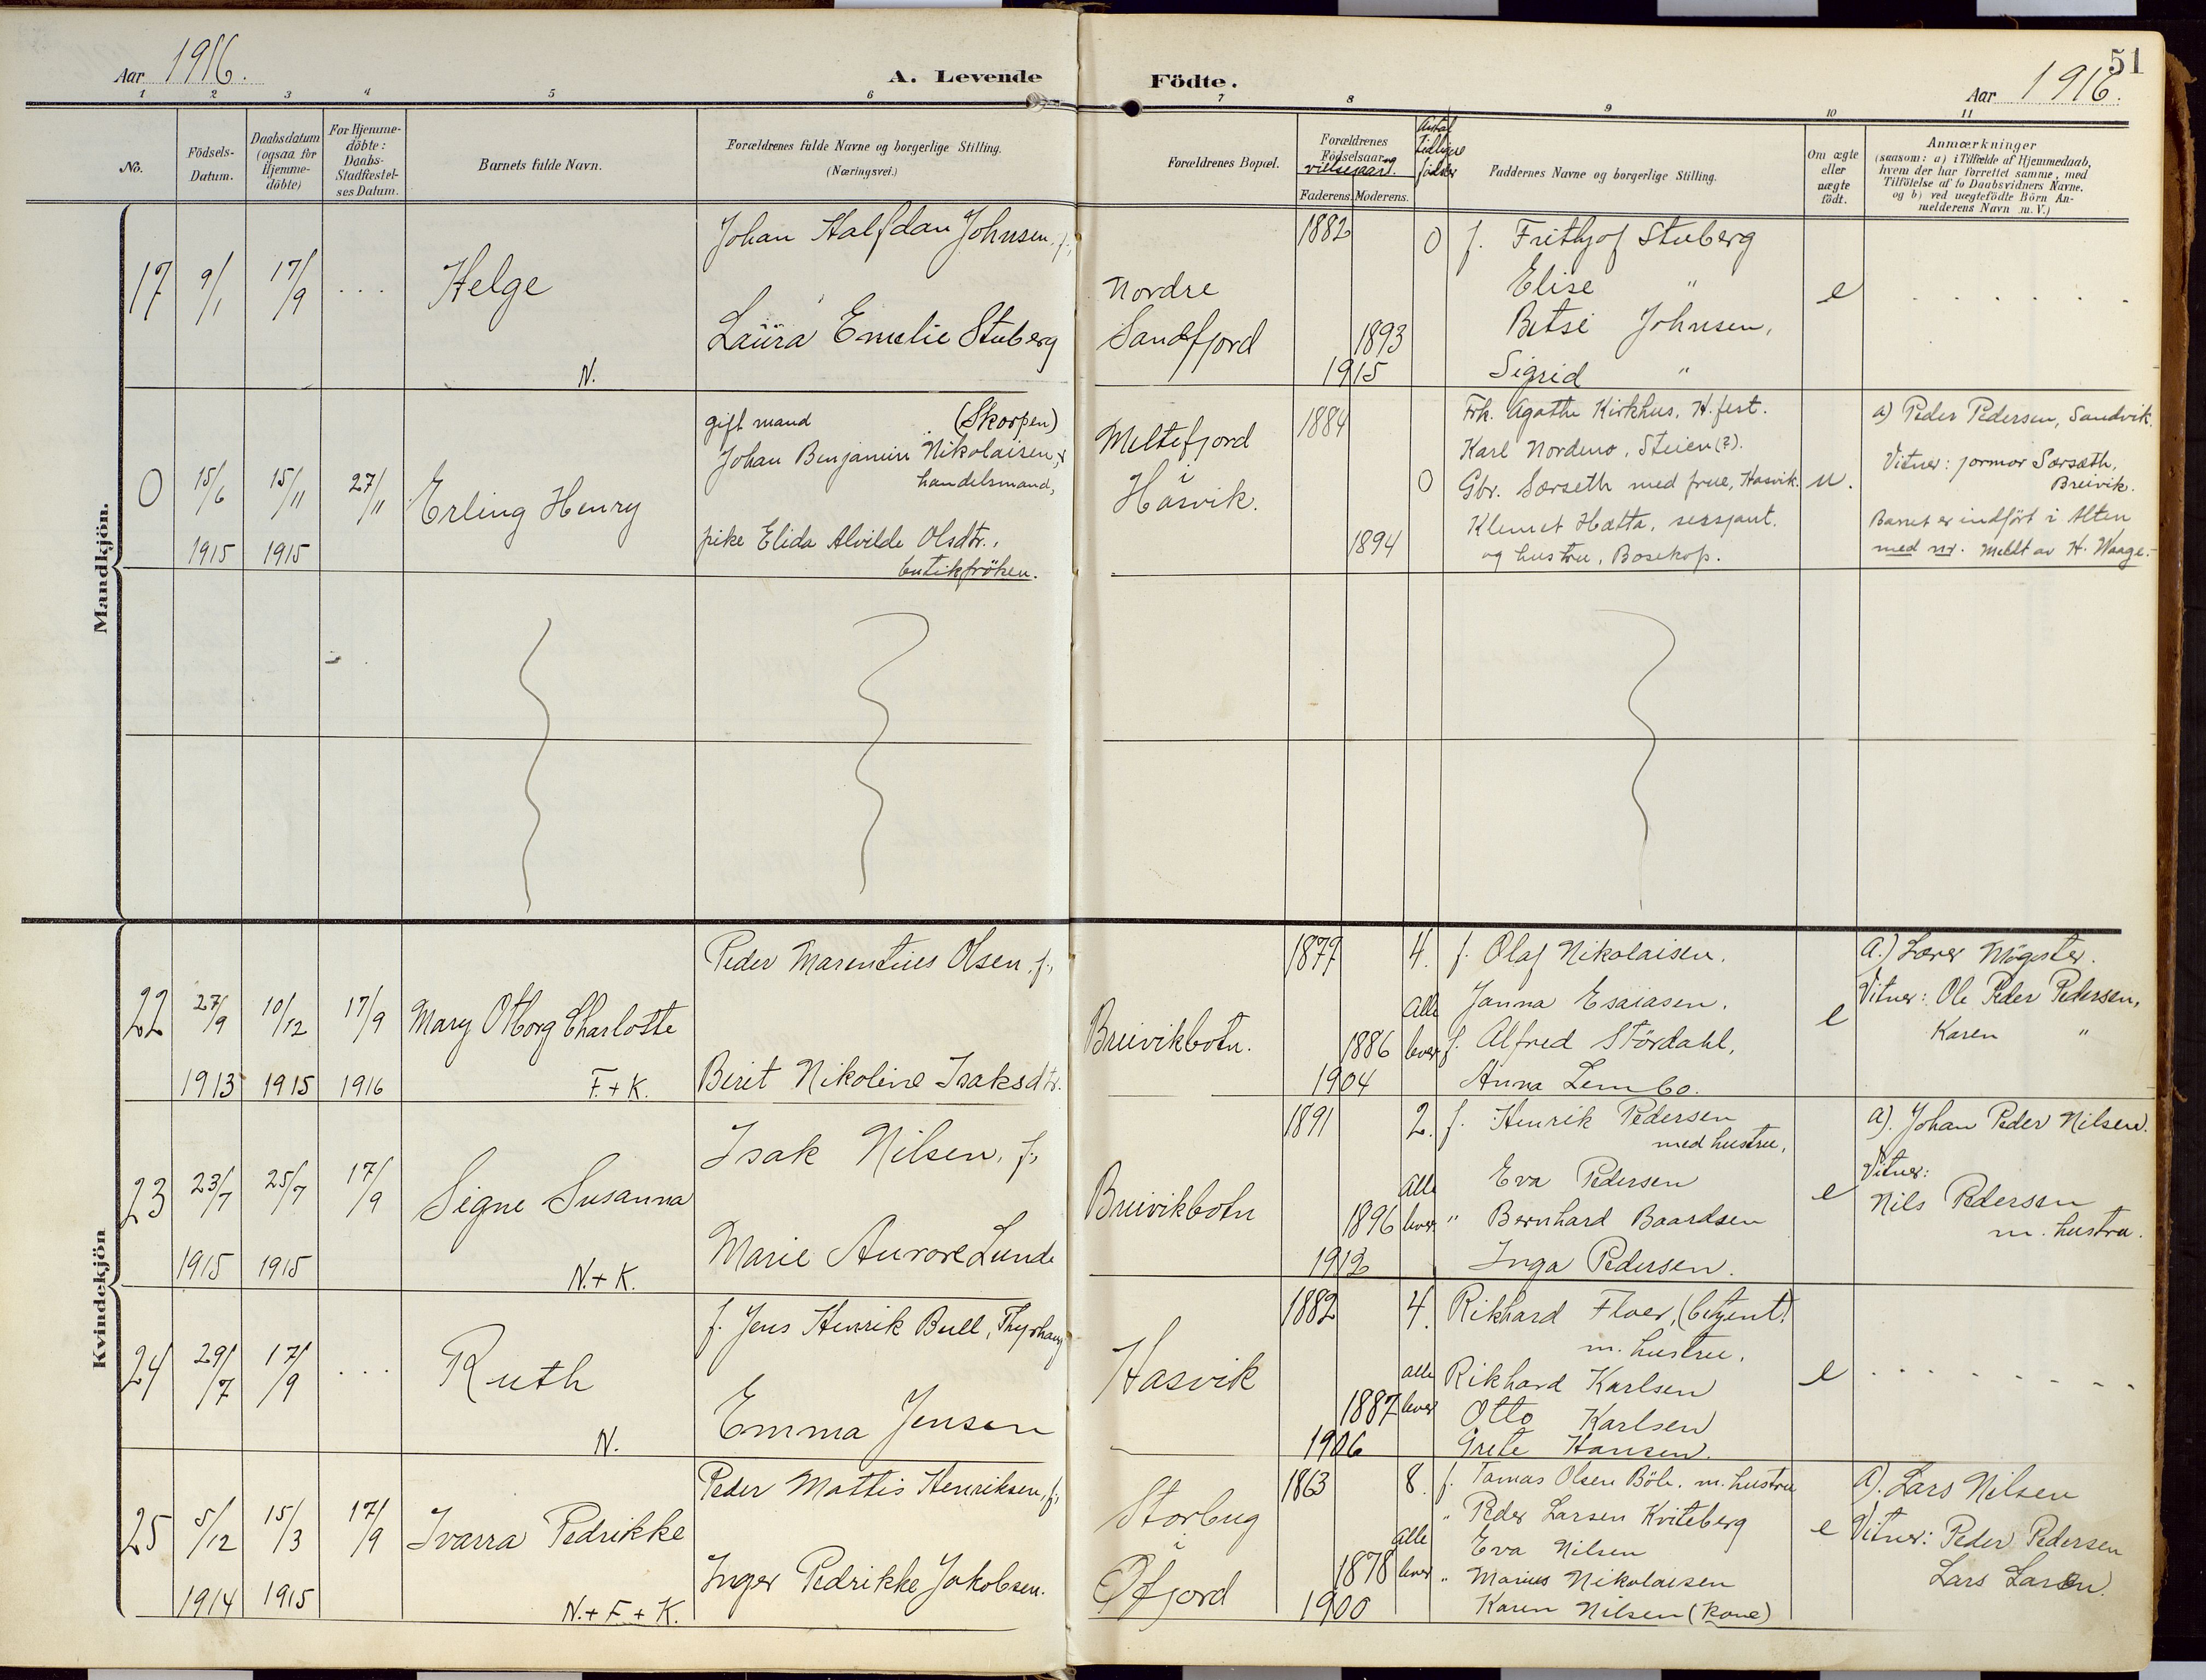 Aar 1916.
A. Levende
Födte.
51
Aar 1916.
1 2 3 4 5 6 7 8 9 10 11
No.
Födsels-Datum.
Daabsdatum (ogsaa for Hjemme-döbte)
For Hjemme-döbte: Daabs-Stadfæstel-ses Datum.
Barnets fulde Navn.
Forældrenes fulde Navne og borgerlige Stilling.
(Næringsvei.)
Forældrenes Bopæl.
Forældrenes Födselsaar og vielsesaar.
Faderens. Moderens.
Antal tidligere födsler
Faddernes Navne og borgerlige Stilling.
Om ægte eller uægte födt.
Anmærkninger
(saasom: a) i Tilfælde af Hjemmedaab,
hvem der har forrettet samme, med
Tilföielse af to Daabsvidners Navne,
og b) ved uægtefödte Börn An-
melderens Navn m. V.)
Mandkjön.
17 9/1 17/9 . . . Helge
N.
Johan Halfdan Johnsen, f.,
Laura Emelie Stuberg
Nordre
Sandfjord
1882
1893
1915
0
f. Frithjof Stuberg
Elise "
Betsi Johnsen,
Sigrid "
e
. . . . . . .
0 15/6 15/11 27/11 Erling Henry
1915 1915
gift mand (Skorpen)
Johan Benjamin Nikolaisen,
handelsmand,
pike Elida Alvilde Olsdtr.,
butikfröken.
Meltefjord
i
Hasvik.
1884
1894
0
Frk. Agathe Kirkhus, H.fest.
Karl Nordmo, Steien (?).
Gbr. Sørseth med frue, Hasvik.
Klemet Hætta, sersjant,
og hustru, Bosekop.
u.
a) Peder Pedersen, Sandvik.
Vitner: jormor Sørsæth,
Breivik.
Barnet er indfört i Alten
med nr. Meldt av H. Waage.
Kvindekjön
22 27/9 10/12 17/9 Mary Otborg Charlotte
1913 1915 1916 F. + K.
Peder Marentius Olsen, f.,
Berit Nikoline Isaksdtr.
Breivikbotn.
1877
1886
1904
4.
alle
lever
f. Olaf Nikolaisen.
Janna Esaiasen.
f. Alfred Stördahl,
Anna Lembo.
e
a.) Lærer Mögster.
Vitner: Ole Peder Pedersen,
Karen "
23 23/7 25/7 17/9 Signe Susanna
1915 1915 N. + K.
Isak Nilsen, f.,
Marie Aurore Lunde
Breivikbotn
1891
1896
1912
2.
alle
lever
f. Henrik Pedersen
med hustru,
Eva Pedersen
" Bernhard Baardsen
Inga Pedersen.
e
a). Johan Peder Nilsen.
Vitner:
Nils Pedersen
m. hustru.
24 29/7 17/9 . . . Ruth
N.
f. Jens Henrik Bull,
Emma Jensen
Hasvik
1882
1887
1906
4.
alle
lever
Rikhard Floer, (betjent)
m. hustru.
Rikhard Karlsen
Otto Karlsen
Grete Hansen.
e
. . . . . . . .
25 5/12 15/3 17/9 Ivarra Pedrikke
1914 1915 N. + F. + K.
Peder Mattis Henriksen, f.,
Inger Pedrikke Jakobsen.
Storbug
i
Öfjord
1863
1878
1900
8.
alle
lever
f. Tomas Olsen Böle. m. hustru
" Peder Larsen Kviteberg
Eva Nilsen
" Marius Nikolaisen
Karen Nilsen (kone)
e
a). Lars Nilsen
Vitner: Peder Pedersen
Lars Larsen.